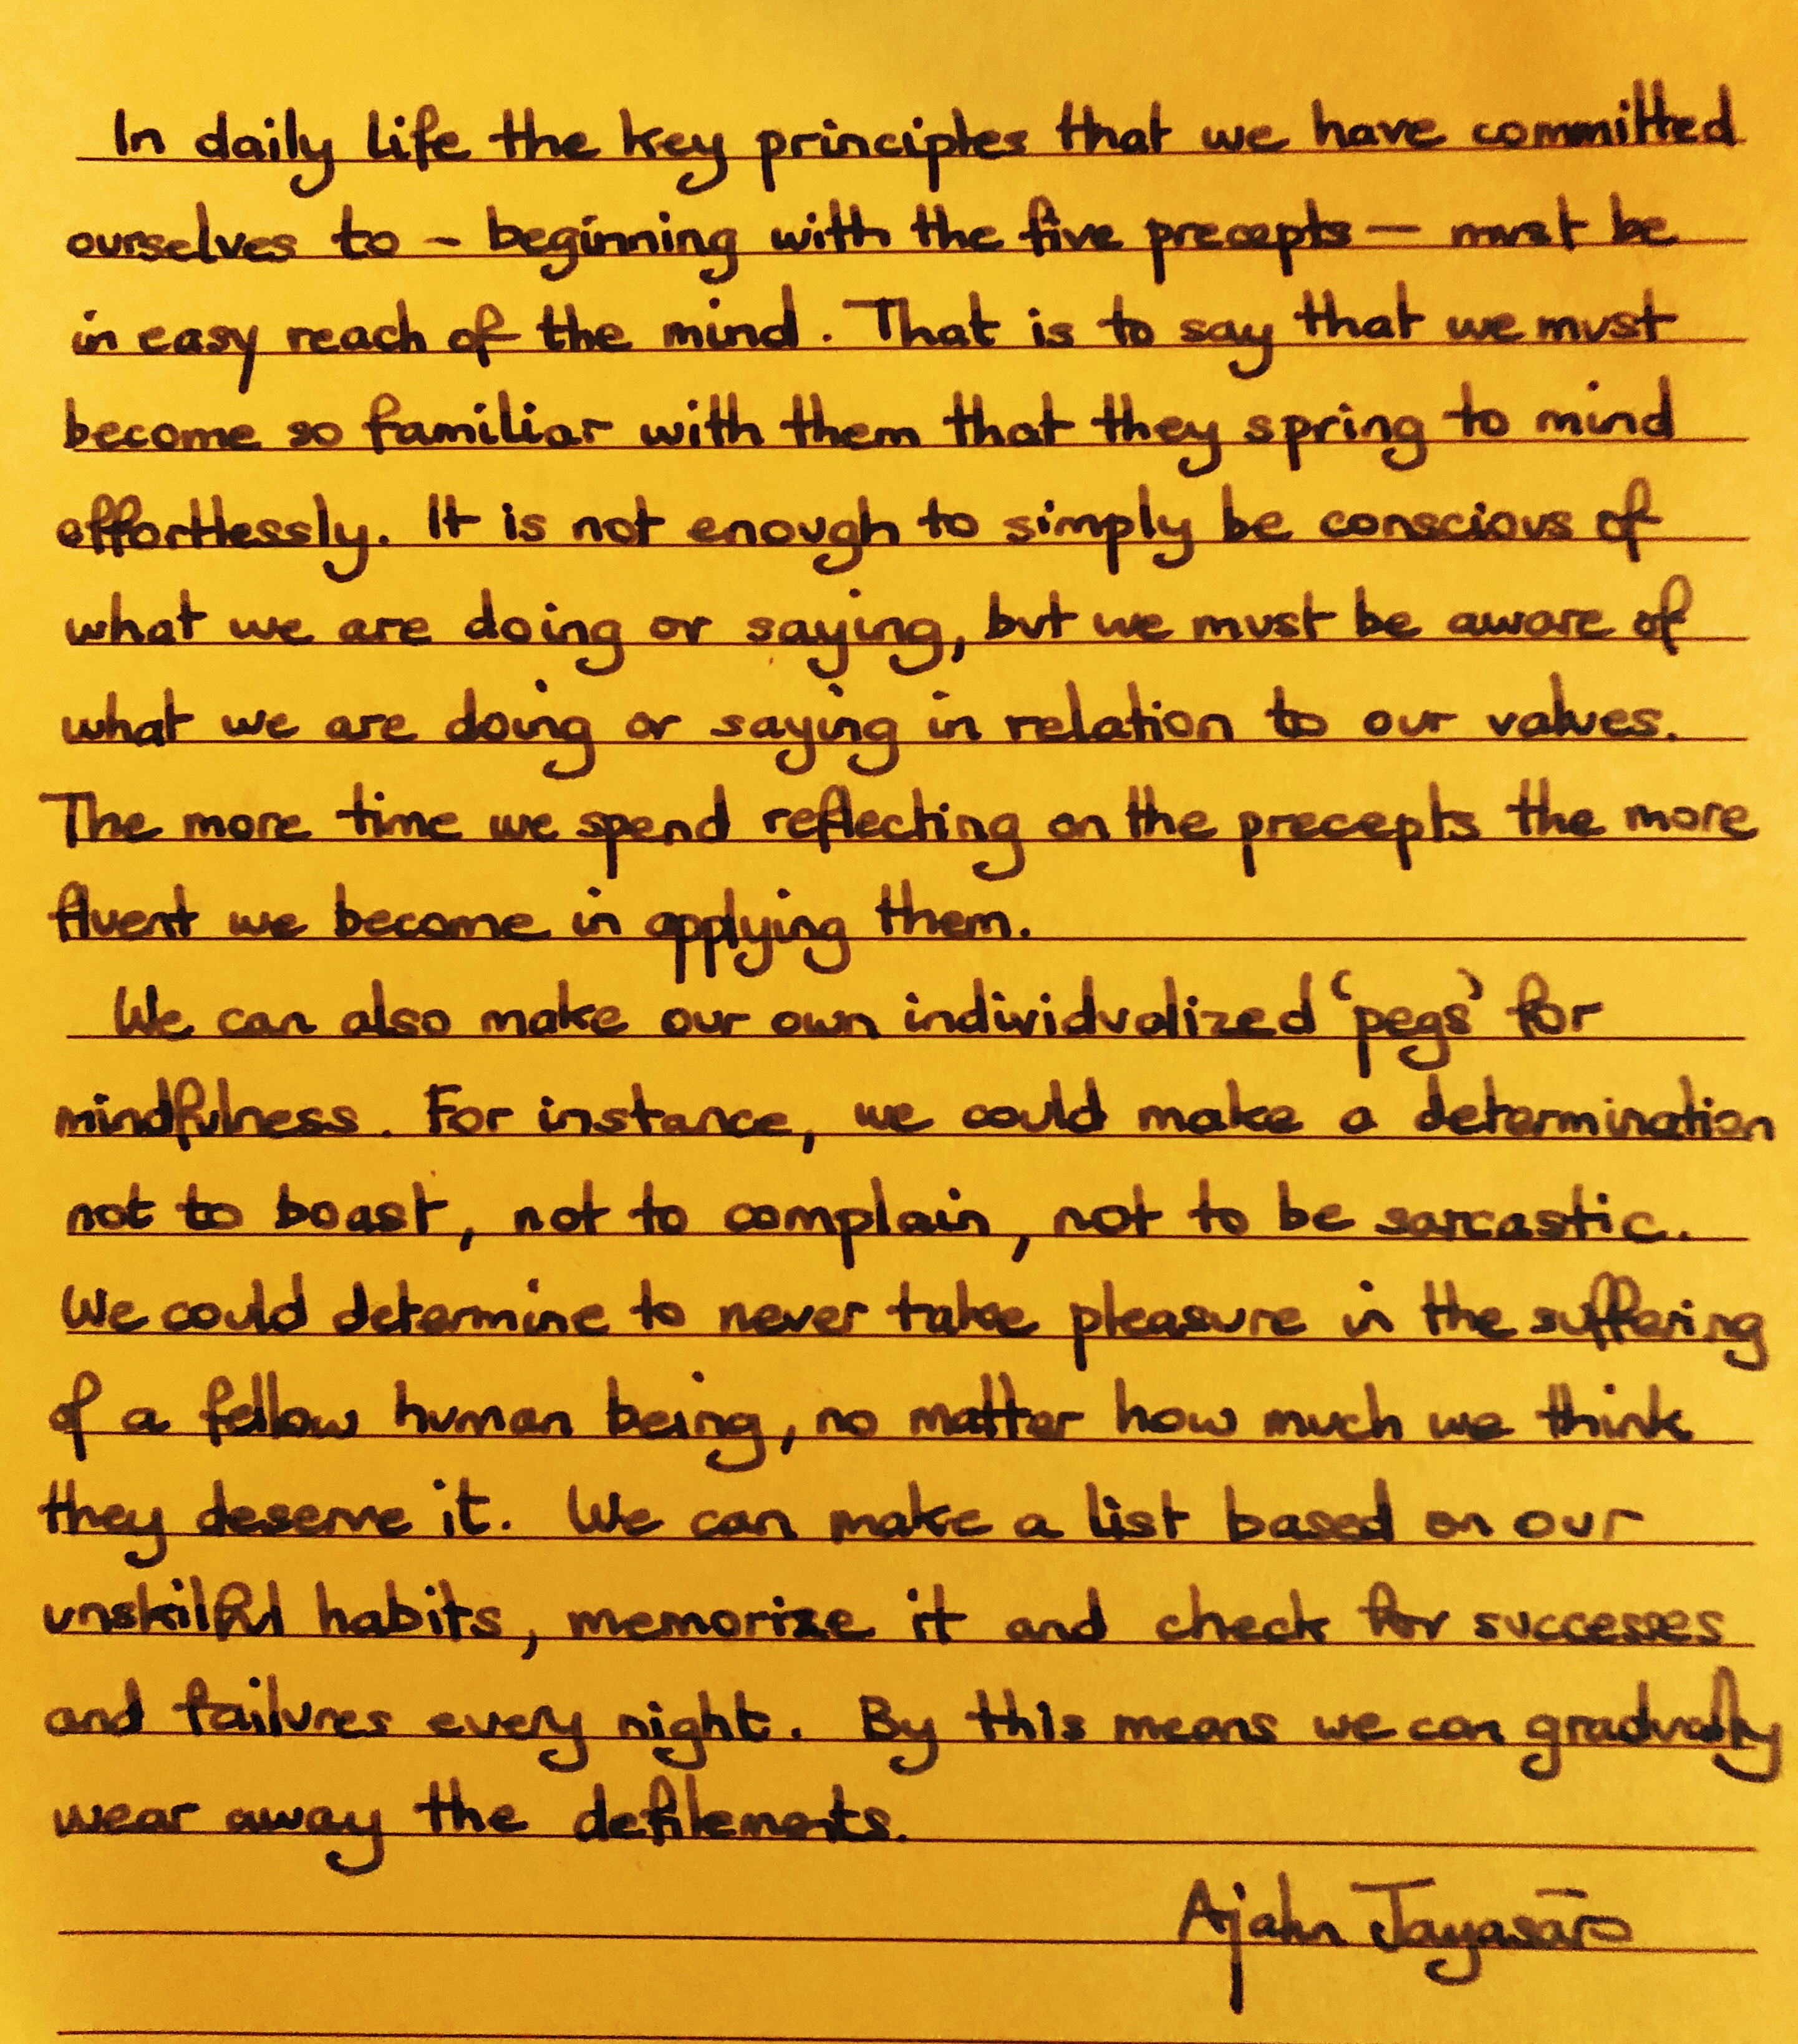 In daily life the key principles that we have committed
ourselves to - beginning with the five precepts — must be
in easy reach of the mind. That is to say that we must
become so familiar with them that they spring to mind
effortlessly. It is not enough to simply be conscious of
what we are doing or saying, but we must be aware of
what we are doing or saying in relation to our values.
The more time we spend reflecting on the precepts the more
fluent we become in applying them.
We can also make our own individualized 'pegs' for
mindfulness. For instance, we could make a determination
not to boast, not to complain, not to be sarcastic.
We could determine to never take pleasure in the suffering
of a fellow human being, no matter how much we think
they deserve it. We can make a list based on our
unskilful habits, memorize it and check for successes
and failures every night. By this means we can gradually
wear away the defilements.
Ajahn Jayasāro